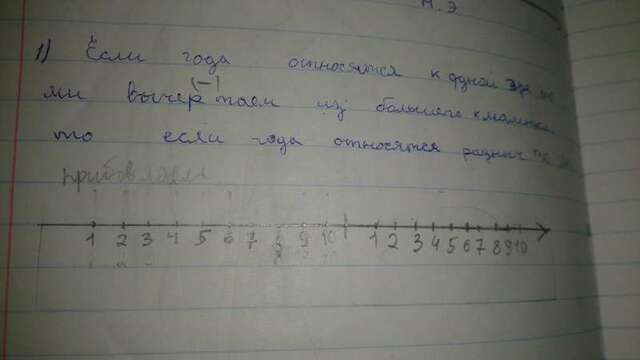 н.э
1) Если года относятся к одной эре
мы вычертаем (-) из большего к малень
то если года относятся разных
прибовляем
1 2 3 4 5 6 7 8 9 10 1 2 3 4 5 6 7 8 9 10